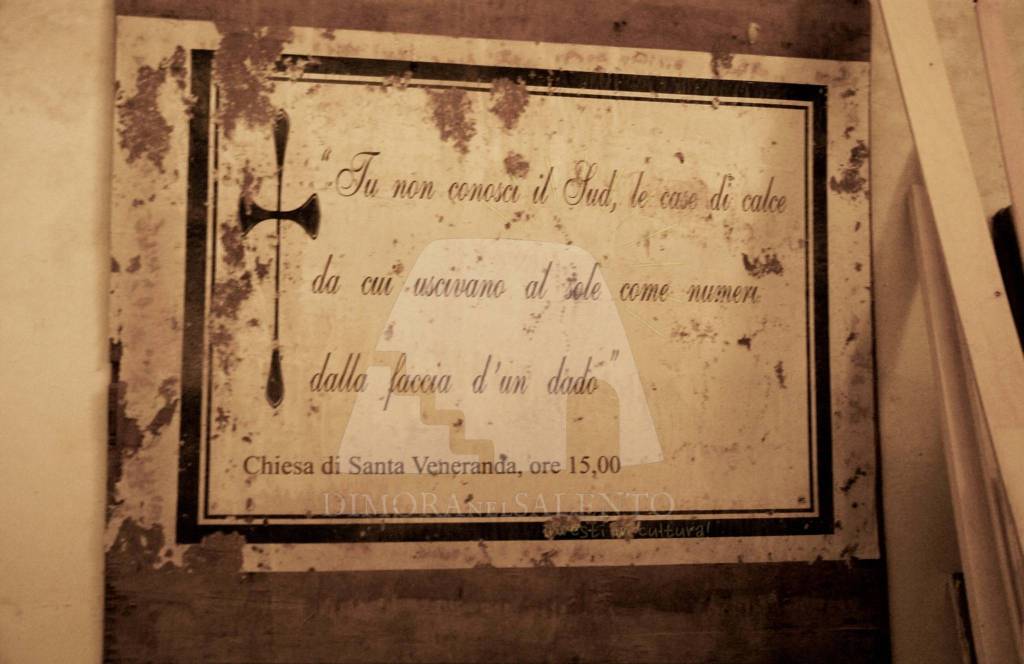 “Tu non conosci il Sud, le case di calce
da cui uscivano al sole come numeri
dalla faccia d'un dado”
Chiesa di Santa Veneranda, ore 15,00
DIMORA NEL SALENTO